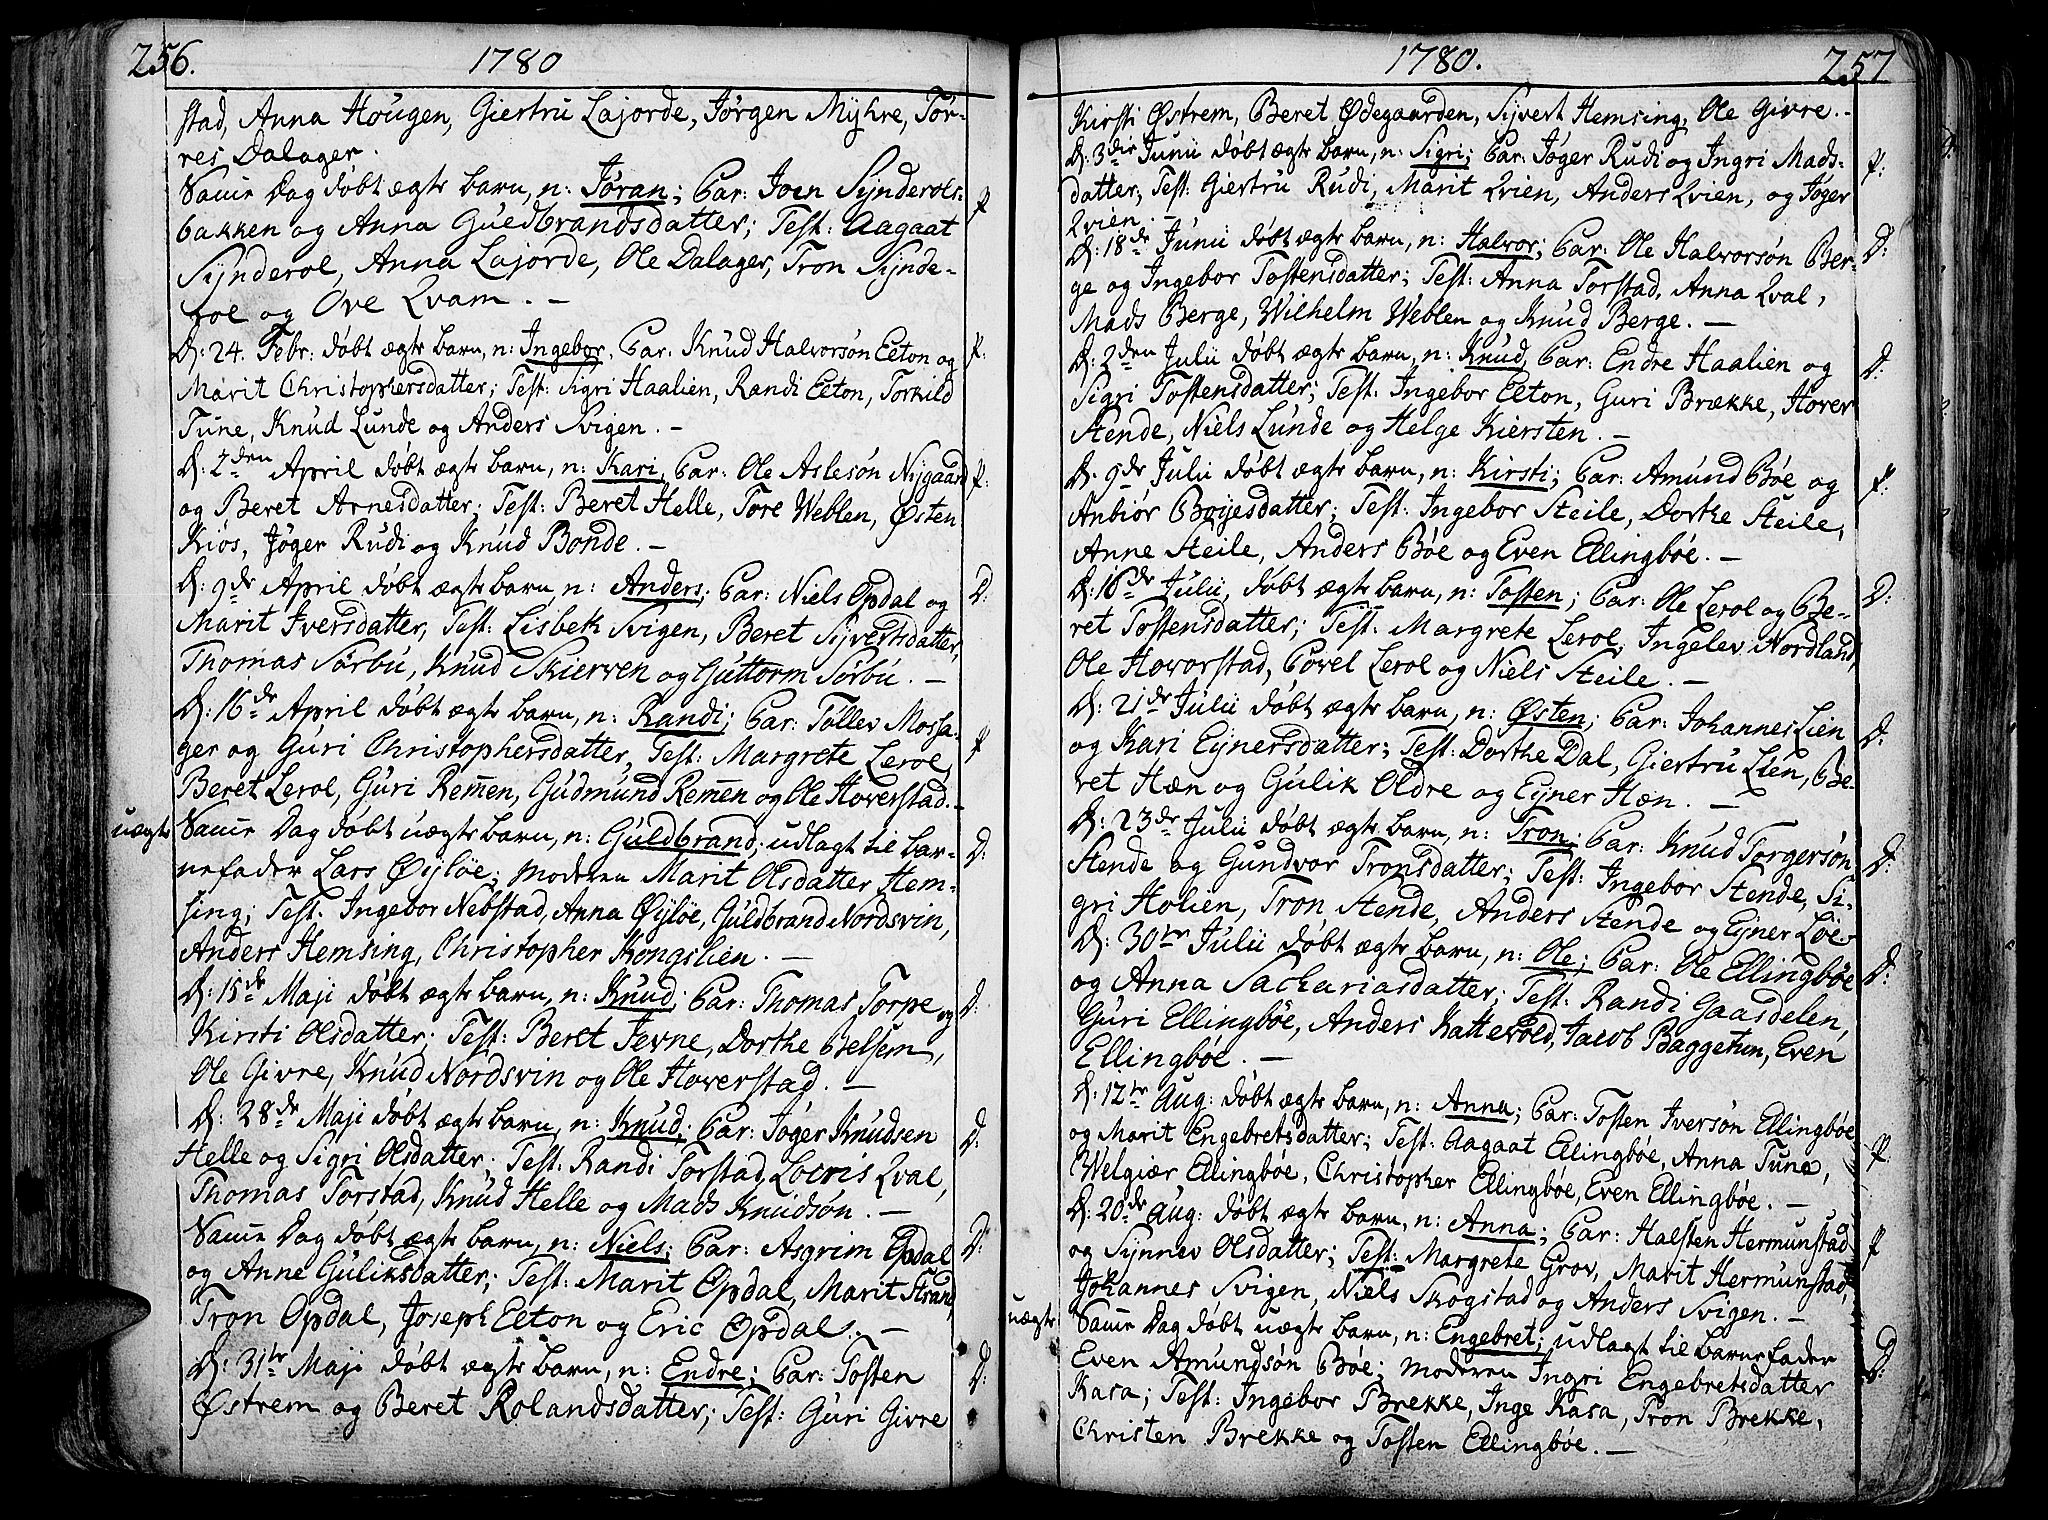 256. 1780
stad, Anna Hougen, Giertru Lajorde, Jørgen Myhre, Tor-
res Dalager.
Samme Dag døbt ægte barn, n: Jøran; Par: Joen Synderols-
bakken og Anna Guldbrandsdatter; Test: Aagaat
Synderol, Anna Lajorde, Ole Dalager, Tron Synde-
rol og Ove Qvam. –
P
D: 24. Febr: døbt ægte barn, n: Ingebor, Par: Knud Halvorsøn Eeton og
Marit Christophersdatter; Test: Sigri Haalien, Randi Eeton, Torkild
Tune, Knud Lunde og Anders Svigen. –
P:
D: 2den April døbt ægte barn, n: Kari, Par: Ole Aslesøn Nygaard
og Beret Arnesdatter; Test: Beret Helle, Tore Weblen, Østen
Kiøs, Jøger Rudi og Knud Bonde. –
P:
D: 9de April døbt ægte barn, n: Anders; Par: Niels Opdal og
Marit Iversdatter, Test: Lisbeth Svigen, Beret Syvertsdatter,
Thomas Sørbu, Knud Skierven og Guttorm Sørbu. –
D:
D: 16de April døbt ægte barn, n: Randi; Par: Tollev Mossa-
ger og Guri Christophersdatter, Test: Margrete Lerol,
Beret Lerol, Guri Remen, Gudmund Remen og Ole Hoverstad. –
P
uægte
Samme Dag døbt uægte barn, n: Guldbrand; udlagt til bar-
nefader Lars Øyløe; moderen Marit Olsdatter Hem-
sing; Test. Ingebor Nebstad, Anna Øyløe, Guldbrand Nordsvin,
Anders Hemsing, Christopher Kongslien. –
D:
D: 15de Maji døbt ægte barn, n: Knud; Par: Thomas Torpe og
Kirsti Olsdatter; Test: Beret Jevne, Dorthe Belsem,
Ole Givre, Knud Nordsvin og Ole Hoverstad. –
D:
D: 28de Maji døbt ægte barn, n: Knud; Par: Jøger Knudsen
Helle og Sigri Olsdatter; Test: Randi Torstad, Locris Qval,
Thomas Torstad, Knud Helle og Mads Knudsøn. –
D:
Samme Dag døbt ægte barn, n: Niels; Par: Asgrim Opdal
og Anne Guliksdatter; Test: Marit Opdal, Marit Strand,
Tron Opdal, Joseph Eeton og Eric Opdal. –
D:
D: 31te Maji døbt ægte barn, n: Endre; Par: Tosten
Østrem og Beret Rolandsdatter; Test: Guri Givre
D:
1780. 257
Kirsti Østrem, Beret Ødegaarden, Syvert Hemsing, Ole Givre. –
D: 3die Junii døbt ægte barn, n: Sigri; Par: Jøger Rudi og Ingri Mads-
datter; Test: Giertru Rudi, Marit Qvien, Anders Qvien, og Jøger
Qvien. –
P:
D: 18de Junii døbt ægte barn, n: Halvor; Par: Ole Halvorsøn Ber-
ge og Ingebor Tostensdatter; Test: Anna Torstad, Anna Qval,
Mads Berge, Wilhelm Weblen og Knud Berge. –
D:
D: 2den Julii døbt ægte barn, n: Knud, Par: Endre Haalien og
Sigri Tostensdatter; Test: Ingebor Eeton, Guri Brække, Hover
Stende, Niels Lunde og Helge Kiersten. –
D:
D. 9de Julii døbt ægte barn, n: Kirsti; Par: Amund Bøe og
Anbiør Boyesdatter; Test: Ingebor Steile, Dorthe Steile,
Anne Steile, Anders Bøe og Even Ellingbøe. –
P:
D: 16de Julii, døbt ægte barn, n: Tosten; Par: Ole Lerol og Be-
ret Tostensdatter; Test: Margrete Lerol, Ingelev Nordland,
Ole Hovorstad, Povel Lerol og Niels Steile. –
D:
D: 21de Julii døbt ægte barn, n: Østen; Par: Johannes Lien
og Kari Eynersdatter; Test: Dorthe Dal, Giertru Lien, Be-
ret Hæn og Gulik Oldre og Eyner Hæn. –
D:
D: 23de Julii døbt ægte barn, n: Tron; Par: Knud Torgersøn
Stende og Gundvor Tronsdatter; Test: Ingebor Stende, Si-
gri Holien, Tron Stende, Anders Stende og Ejner Loe
D:
D: 30te Julii døbt ægte barn, n: Ole; Par: Ole Ellingbøe
og Anna Sachariasdatter; Test: Randi Gaasdelen,
Guri Ellingbøe, Anders Kattevold, Jacob Baggetun, Even
Ellingbøe. –
D:
D: 12te Aug: døbt ægte barn, n: Anna; Par: Tosten Iversøn Ellingbøe
og Marit Engebretsdatter; Test: Aagaat Ellingbøe, Anna Tune,
Welgiær Ellingbøe, Christopher Ellingbøe, Even Ellingbøe. –
P.
D: 20de Aug: døbt ægte barn, n: Anna; Par: Halsten Hermunstad
og Synnev Olsdatter; Test: Margrete Grov, Marit Hermunstad,
Johannes Svigen, Niels Skogstad og Anders Svigen. –
P
uægte
Samme Dag døbt uægte barn, n: Engebret; udlagt til barnefader
Even Amundsøn Bøe; moderen Ingri Engebretsdatter
Kasa; Test: Ingebor Brekke, Inge Kasa, Tron Brekke,
Christen Brekke og Tosten Ellingbøe. –
D: